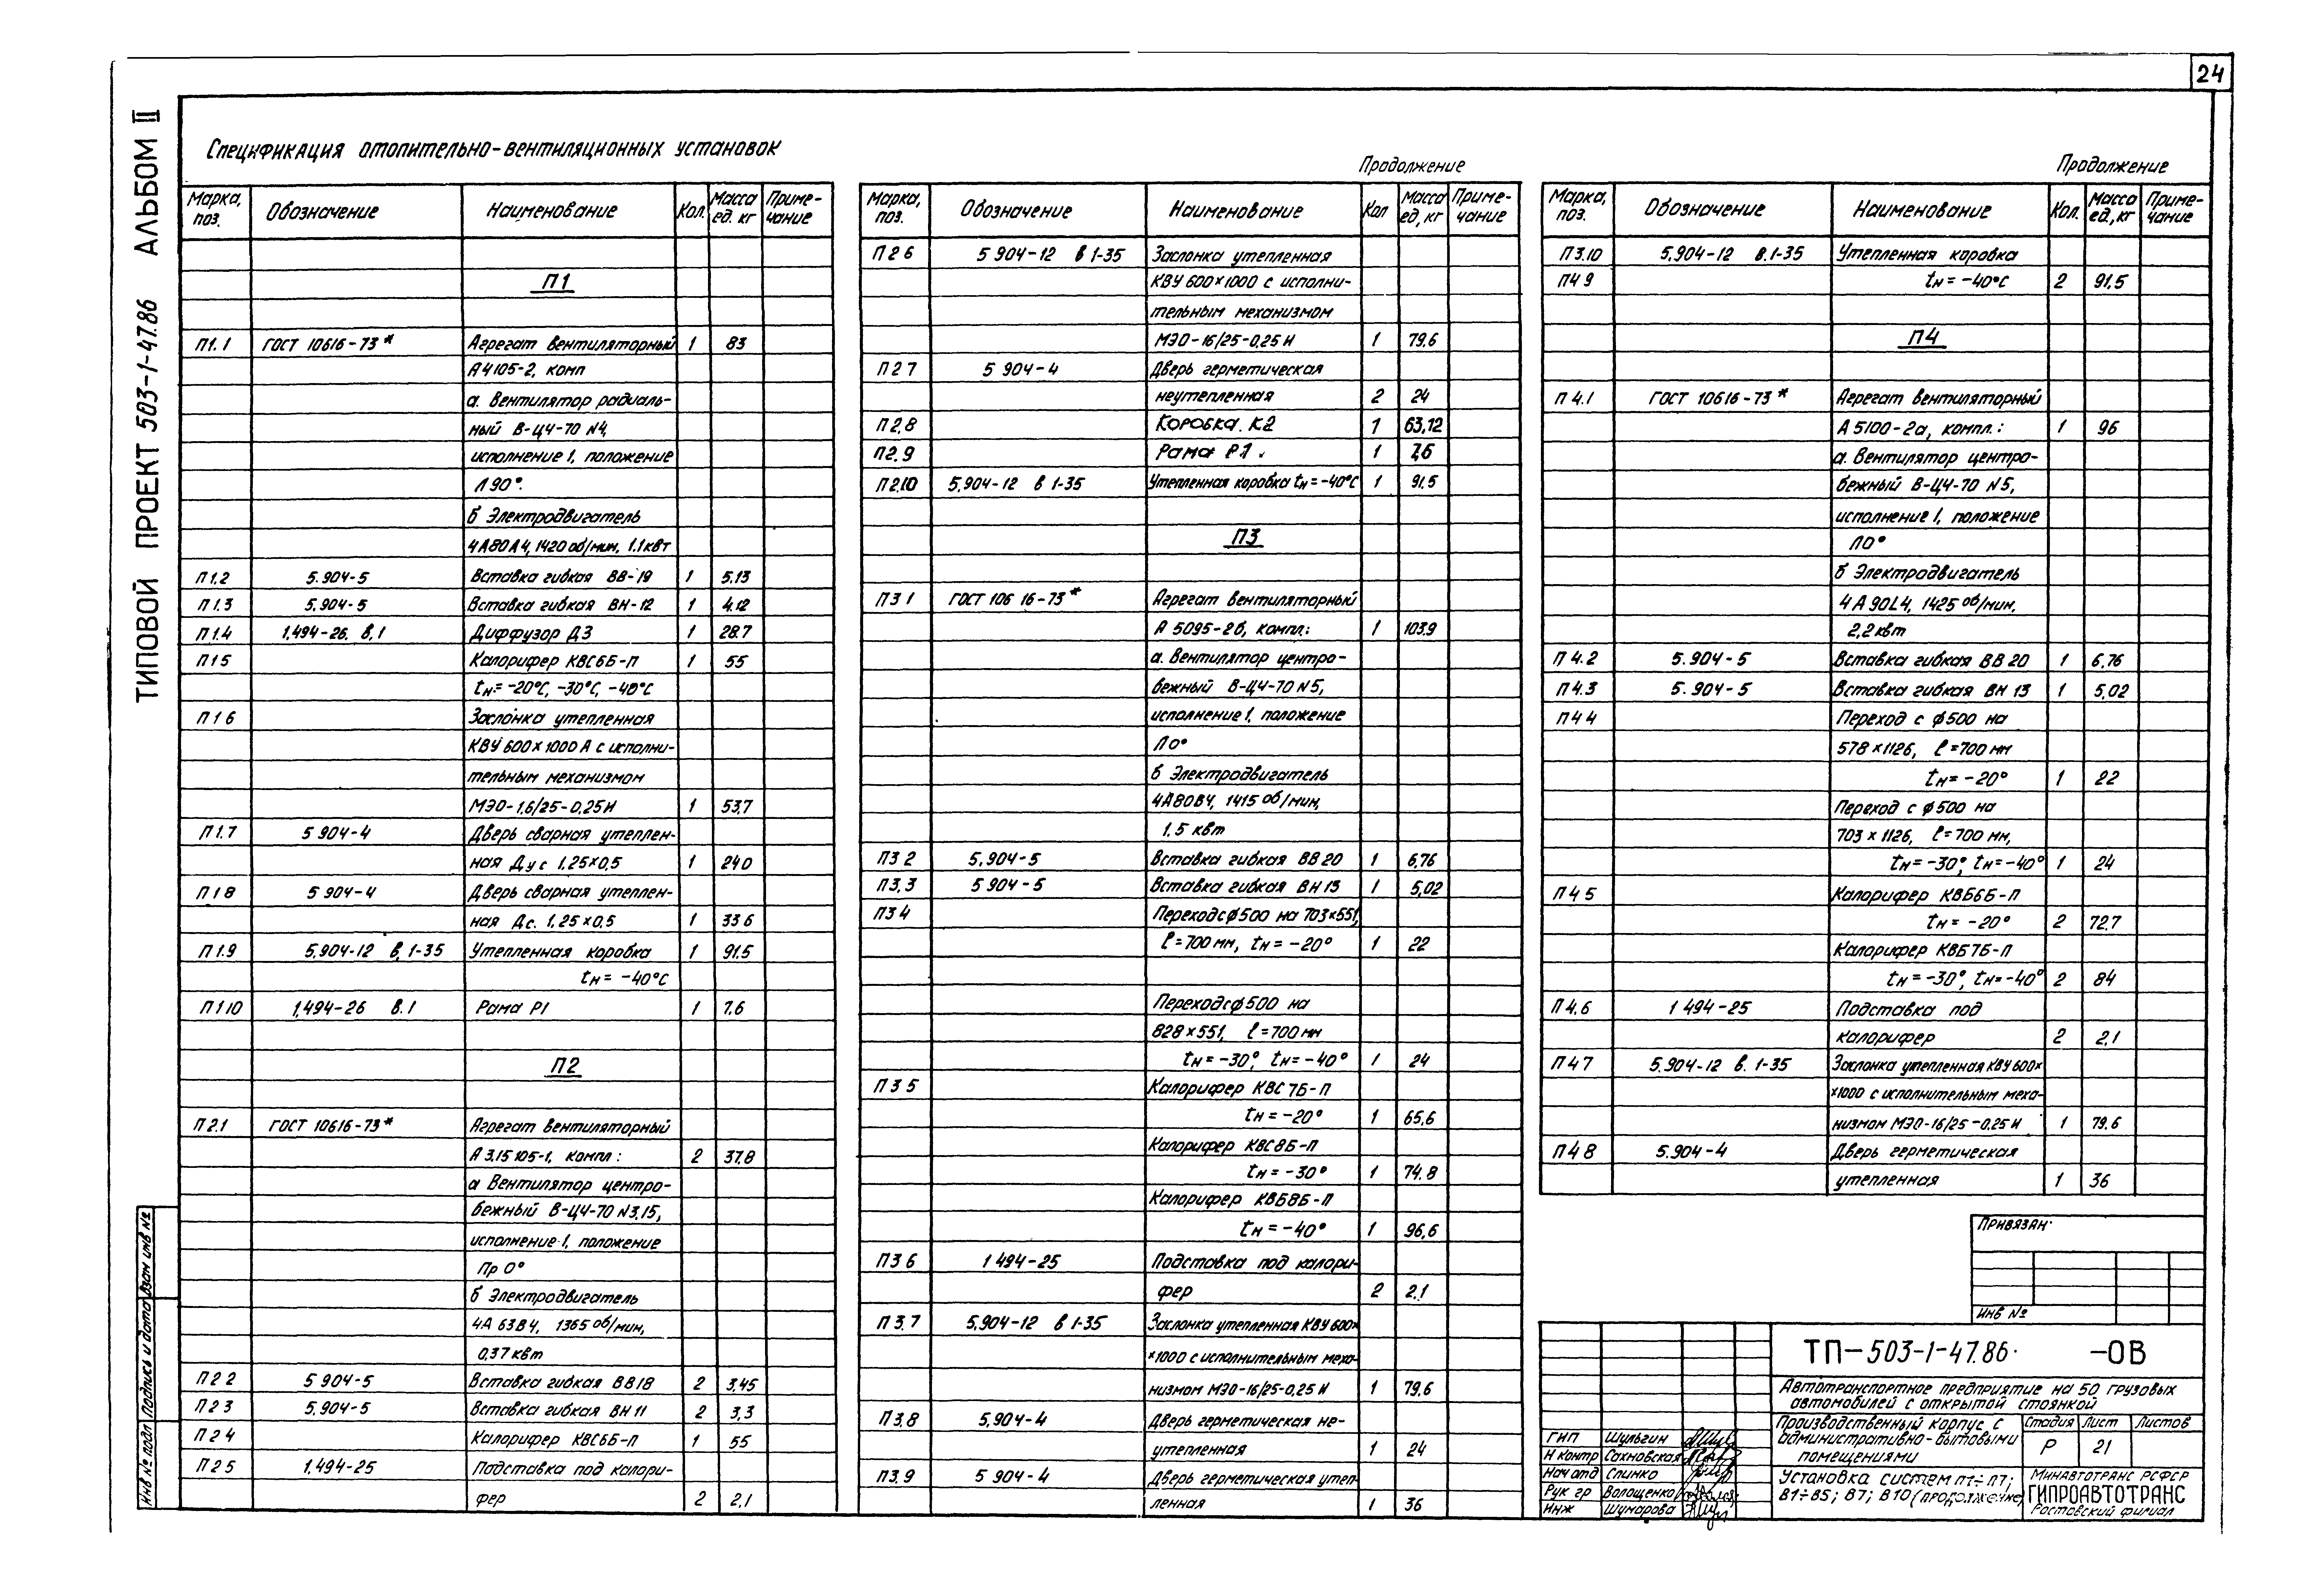 24
ТИПОВОЙ ПРОЕКТ 503-1-47.86 АЛЬБОМ II
Спецификация отопительно-вентиляционных установок
Марка, поз. Обозначение Наименование Кол. Масса ед. кг Приме-чание
П1
П1.1 ГОСТ 10616-73* Агрегат вентиляторный 1 83
А4105-2, комп
а. Вентилятор радиаль-
ный В-Ц4-70 N4,
исполнение 1, положение
Л90°.
б Электродвигатель
4А80А4, 1420 об/мин, 1.1квт
П1.2 5.904-5 Вставка гибкая ВВ-19 1 5,13
П1.3 5.904-5 Вставка гибкая ВН-12 1 4.12
П1.4 1.494-26. в.1 Диффузор Д3 1 28.7
П15 Калорифер КВС6Б-П 1 55
tн=-20°С, -30°С, -40°С
П16 Заслонка утепленная
КВУ 600×1000 А с исполни-
тельным механизмом
МЭО-1,6/25-0,25И 1 53,7
П1.7 5 904-4 Дверь сварная утеплен-
ная Ду с 1,25×0,5 1 24 0
П18 5 904-4 Дверь сварная утеплен-
ная Дс. 1,25×0,5 1 33 6
П1.9 5.904-12 в, 1-35 Утепленная коробка 1 91.5
tн= -40°С
П1 10 1,494-26 в.1 Рама Р1 1 7.6
П2
П2.1 ГОСТ 10616-73* Агрегат вентиляторный
А 3.15 105-1, компл: 2 37.8
а Вентилятор центро-
бежный В-Ц4-70 N3.15,
исполнение 1, положение
Пр 0°
б Электродвигатель
4А 63В4, 1365 об/мин,
0,37квт
П2 2 5 904-5 Вставка гибкая ВВ18 2 3,45
П2 3 5.904-5 Вставка гибкая ВН11 2 3,3
П2 4 Калорифер КВС6Б-П 1 55
П2 5 1.494-25 Подставка под калори-
фер 2 2,1
Продолжение
Марка, поз. Обозначение Наименование Кол Масса ед, кг Приме-чание
П2 6 5 904-12 в 1-35 Заслонка утепленная
КВУ 600×1000 с исполни-
тельным механизмом
МЭО-16/25-0,25И 1 79,6
П2 7 5 904-4 Дверь герметическая
неутепленная 2 24
П2,8 Коробка. К2 1 63,12
П2.9 Рама Р1 1 7,6
П2.10 5.904-12 в 1-35 Утепленная коробка tн=-40°С 1 91.5
П3
П3 1 ГОСТ 106 16-73* Агрегат вентиляторный
А 5095-2б, компл: 1 103.9
а. Вентилятор центро-
бежный В-Ц4-70 N5,
исполнение 1, положение
Л0°
б Электродвигатель
4А80В4, 1415 об/мин,
1,5 квт
П3 2 5,904-5 Вставка гибкая ВВ20 1 6,76
П3,3 5 904-5 Вставка гибкая ВН13 1 5,02
П3 4 Переход с ф500 на 703×551,
ℓ=700мм, tн=-20° 1 22
Переход с ф500 на
828×551, ℓ=700мм
tн=-30°, tн=-40° 1 24
П3 5 Калорифер КВС7Б-П
tн=-20° 1 65,6
Калорифер КВС8Б-П
tн=-30° 1 74.8
Калорифер КВБ8Б-П
tн=-40° 1 96,6
П3 6 1 494-25 Подставка под калори-
фер 2 2.1
П3.7 5,904-12 в 1-35 Заслонка утепленная КВУ 600×
×1000 с исполнительным меха-
низмом МЭО-16/25-0,25И 1 79,6
П3.8 5,904-4 Дверь герметическая не-
утепленная 1 24
П3.9 5 904-4 Дверь герметическая утеп-
ленная 1 36
Продолжение
Марка, поз. Обозначение Наименование Кол. Масса ед, кг Приме-чание
П3.10 5.904-12 в.1-35 Утепленная коробка
П4 9 tн=-40°С 2 91,5
П4
П 4.1 ГОСТ 10616-73* Агрегат вентиляторный
А 5100-2а, компл.: 1 96
а. Вентилятор центро-
бежный В-Ц4-70 N5,
исполнение 1, положение
Л0°
б Электродвигатель
4А 90L4, 1425 об/мин,
2,2квт
П 4.2 5.904-5 Вставка гибкая ВВ 20 1 6,76
П 4.3 5. 904-5 Вставка гибкая ВН 13 1 5,02
П4 4 Переход с ф500 на
578×1126, ℓ=700мм
tн=-20° 1 22
Переход с ф500 на
703×1126, ℓ=700мм,
tн=-30°, tн=-40° 1 24
П4 5 Калорифер КВБ6Б-П
tн=-20° 2 72.7
Калорифер КВБ7Б-П
tн=-30°, tн=-40° 2 84
П4.6 1 494-25 Подставка под
калорифер 2 2,1
П4 7 5.904-12 в. 1-35 Заслонка утепленная КВУ 600×
×1000 с исполнительным меха-
низмом МЭО-16/25-0,25И 1 79.6
П4 8 5.904-4 Дверь герметическая
утепленная 1 36
Привязан:
Инв №
ТП-503-1-47.86· -ОВ
Автотранспортное предприятие на 50 грузовых
автомобилей с открытой стоянкой
Производственный корпус с
административно-бытовыми
помещениями
Стадия Лист Листов
Р 21
Установка систем П1÷П7;
В1÷В5; В7; В10 (продолжение)
Минавтотранс РСФСР
ГИПРОАВТОТРАНС
Ростовский филиал
ГИП Шульгин
Н контр Сахновская
Нач отд Слинко
Рук гр Волощенко
Инж Шумарова
Инв № подл Подпись и дата Взам инв №